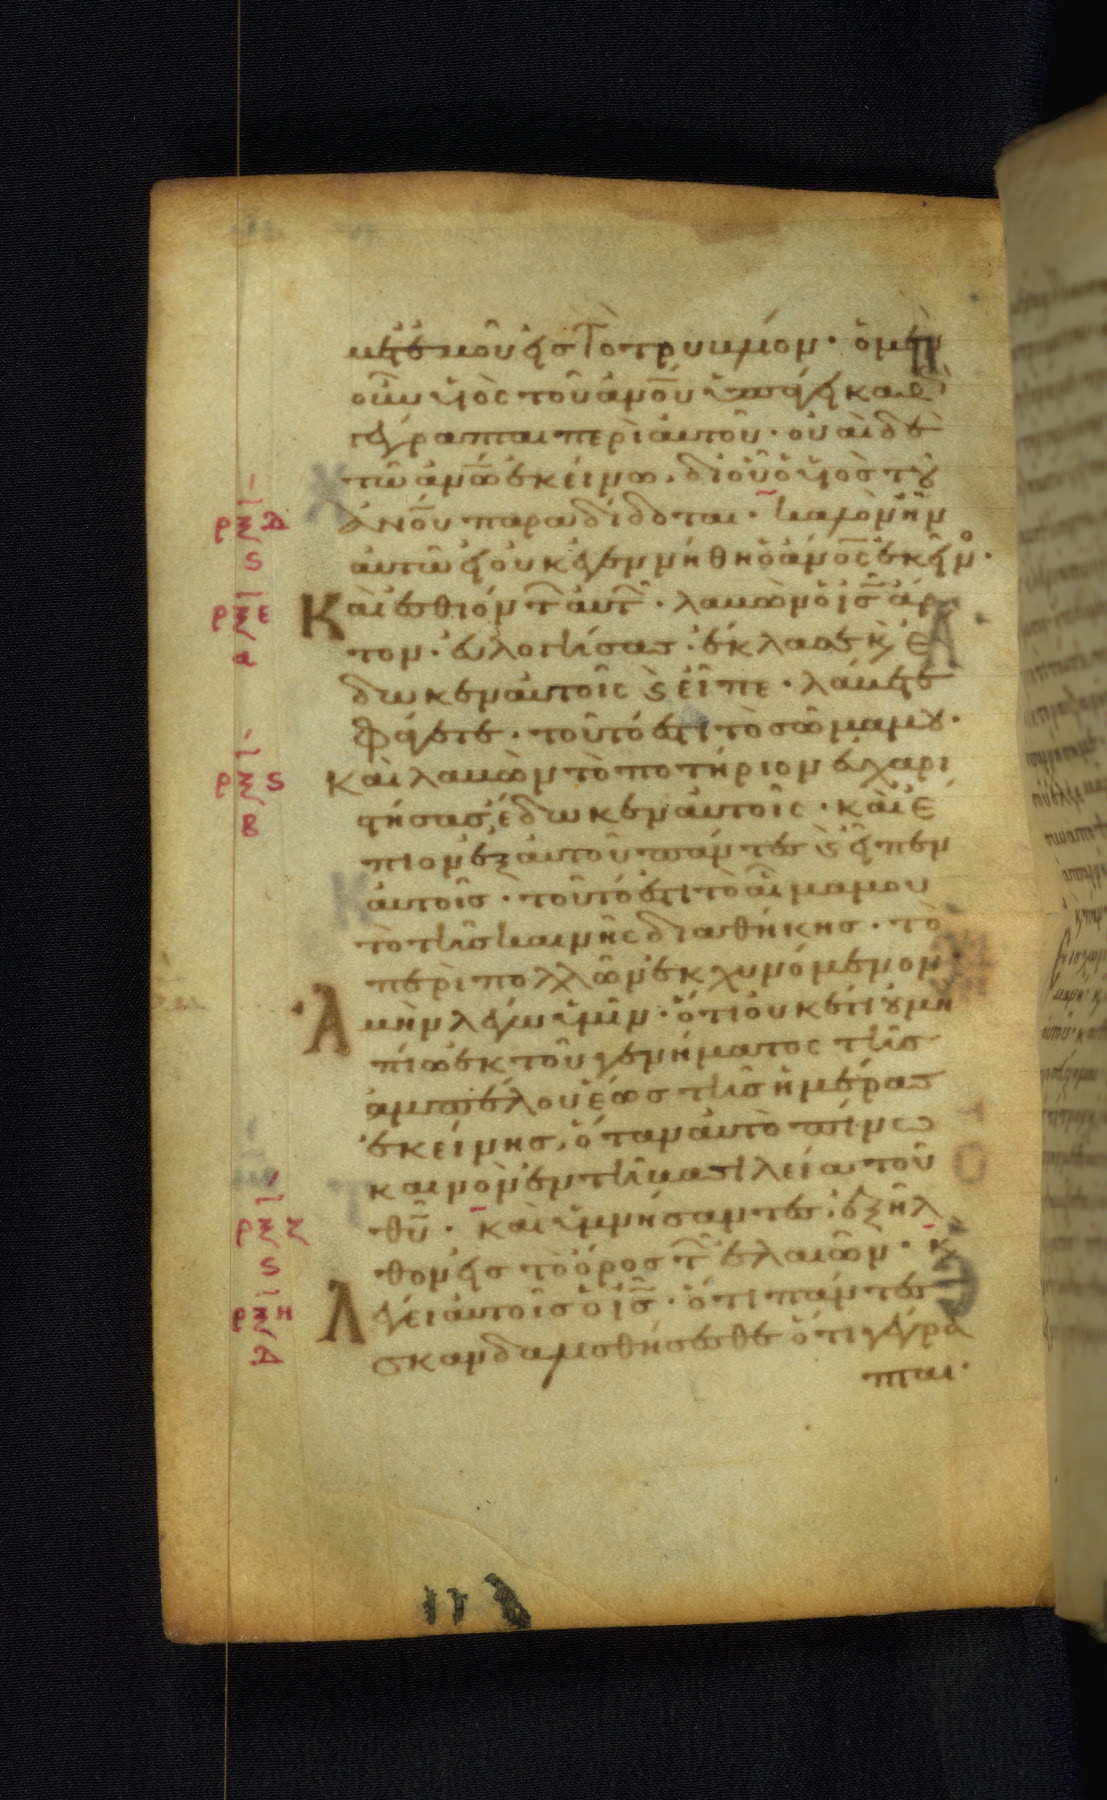 μετ ἐμοῦ εἰς τὸ τρυβλίον · ὁ μὲν
οὖν υἱὸς τοῦ ἀν̅ο̅υ̅ ὑπάγει καθ
γέγραπται περὶ αὐτοῦ · οὐαὶ δὲ
τῶ ἀν̅ω̅ ἐκείνω · δι οὗ ὁ υἱὸς του
ἀν̅ο̅υ̅ παραδίδοται · καλὸν ἦν
αὐτῶ εἰ οὐκ ἐγεννήθη ὁ ἀν̅ο̅ς̅ ἐκεῖνο ·
Καὶ ἐσθιόντ αὐτ · λαβὼν ὁ ι̅ς̅ ἄρ
τον · εὐλογήσας · ἔκλασε κ ἔ
δωκεν αὐτοῖς κ εἶπε · λάβετε
φάγετε · τοῦτό ἐστι τὸ σῶμα μου ·
Καὶ λαβὼν τὸ ποτήριον εὐχαρι
στήσας ἔδωκεν αὐτοῖς · καὶ ἔ
πιον ἐξ αὐτοῦ πάντες κ εἶπεν
αὐτοῖς · τοῦτό ἐστι τὸ αἷμα μου
τὸ τῆς καινῆς διαθήκης · τὸ
περὶ πολλῶν ἐκχυνόμενον
Ἀμὴν λέγω ὑμῖν · ὅτι οὐκέτι οὐ μὴ
πίω ἐκ τοῦ γενήματος τῆς
ἀμπέλου ἕως τῆς ἡμέρας
ἐκείνης, ὅταν αὐτὸ πίνω
καινὸν ἐν τῆ βασιλεία τοῦ
θ̅υ̅ · καὶ ὑμνήσαντες, ἐξῆλ
θον εἰς τὸ ὄρος τ ἐλαιῶν · κ
Λέγει αὐτοῖς ὁ ι̅ς̅ · ὅτι πάντες
σκανδαλισθήσεσθε ὅτι γέγρα
πται ·
ρξδ
ς
ρξε
α
ρξς
β
ρξζ
ς
ρξη
δ